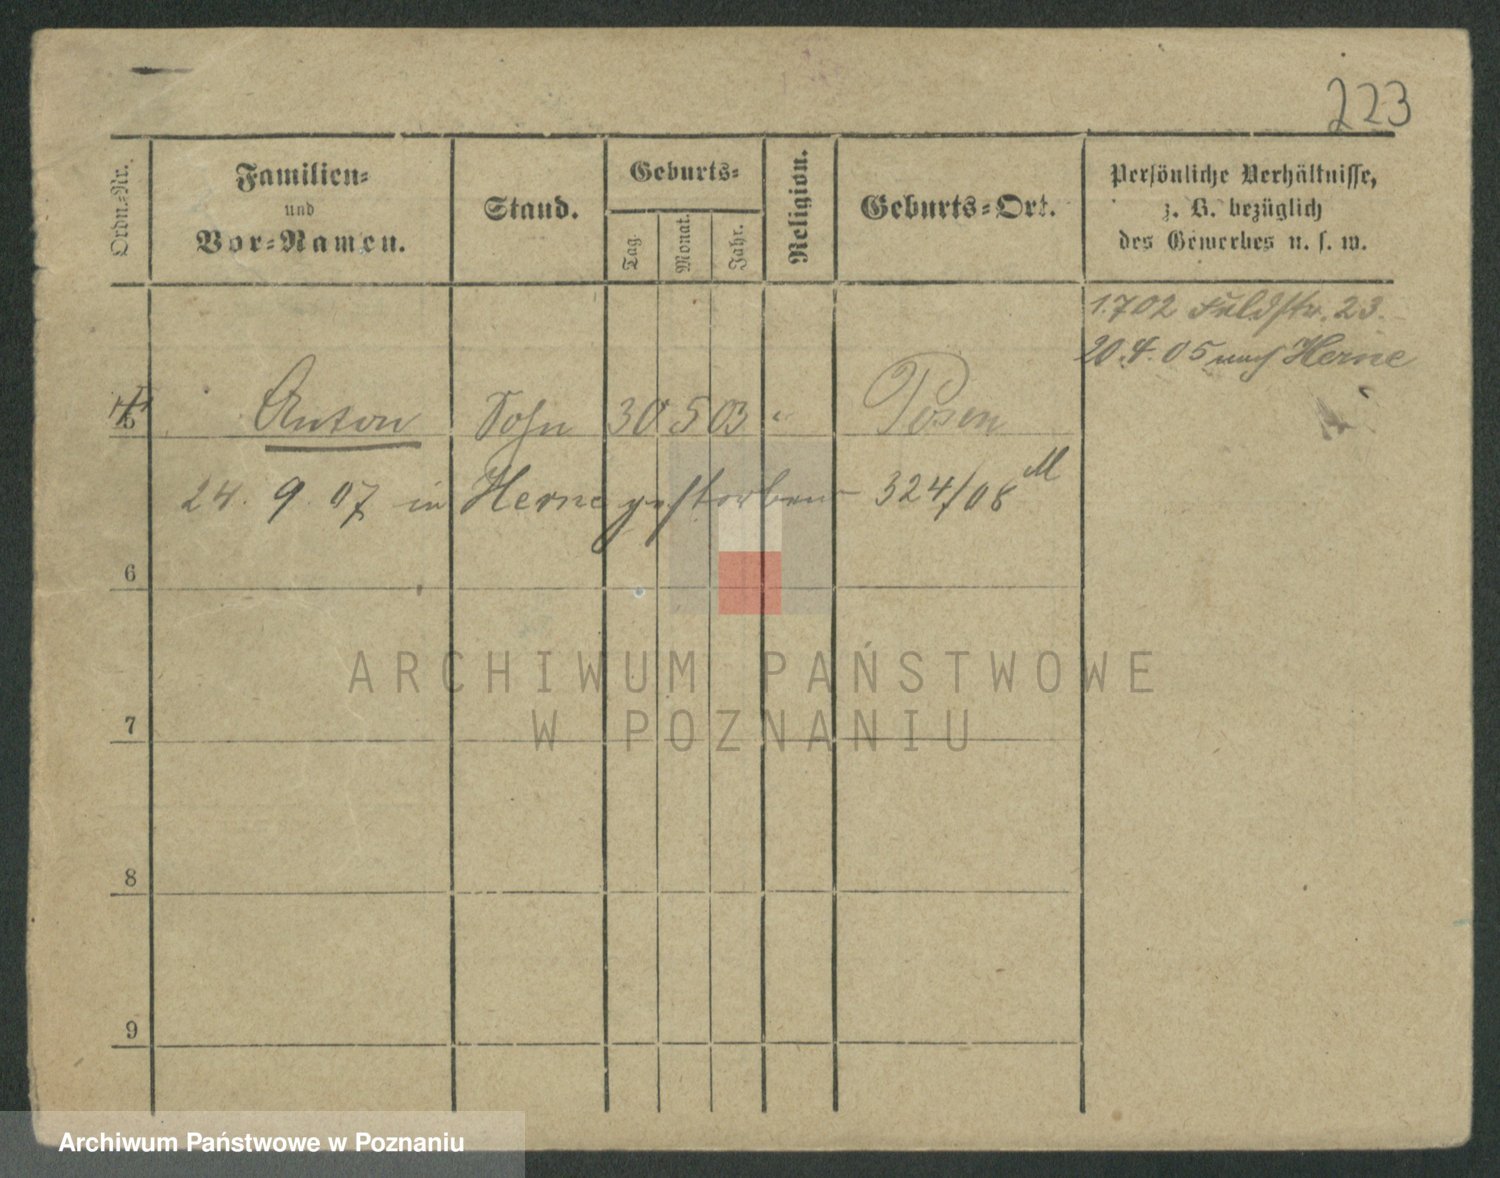 223
Ordn.-Nr.
Familien-
und
Vor-Namen.
Stand.
Geburts-
Tag.
Monat.
Jahr.
Religion.
Geburts-Ort.
Persönliche Verhältnisse,
z. B. bezüglich
des Gewerbes u. s. w.
1.702 Feldstr. 23.
20.4.05 nach Herne
5 Anton Sohn 30 5 03 " Posen
24. 9. 07 in Herne gestorben - 324/08 M
6
ARCHIWUM PAŃSTWOWE
W POZNANIU
7
8
9
Archiwum Państwowe w Poznaniu